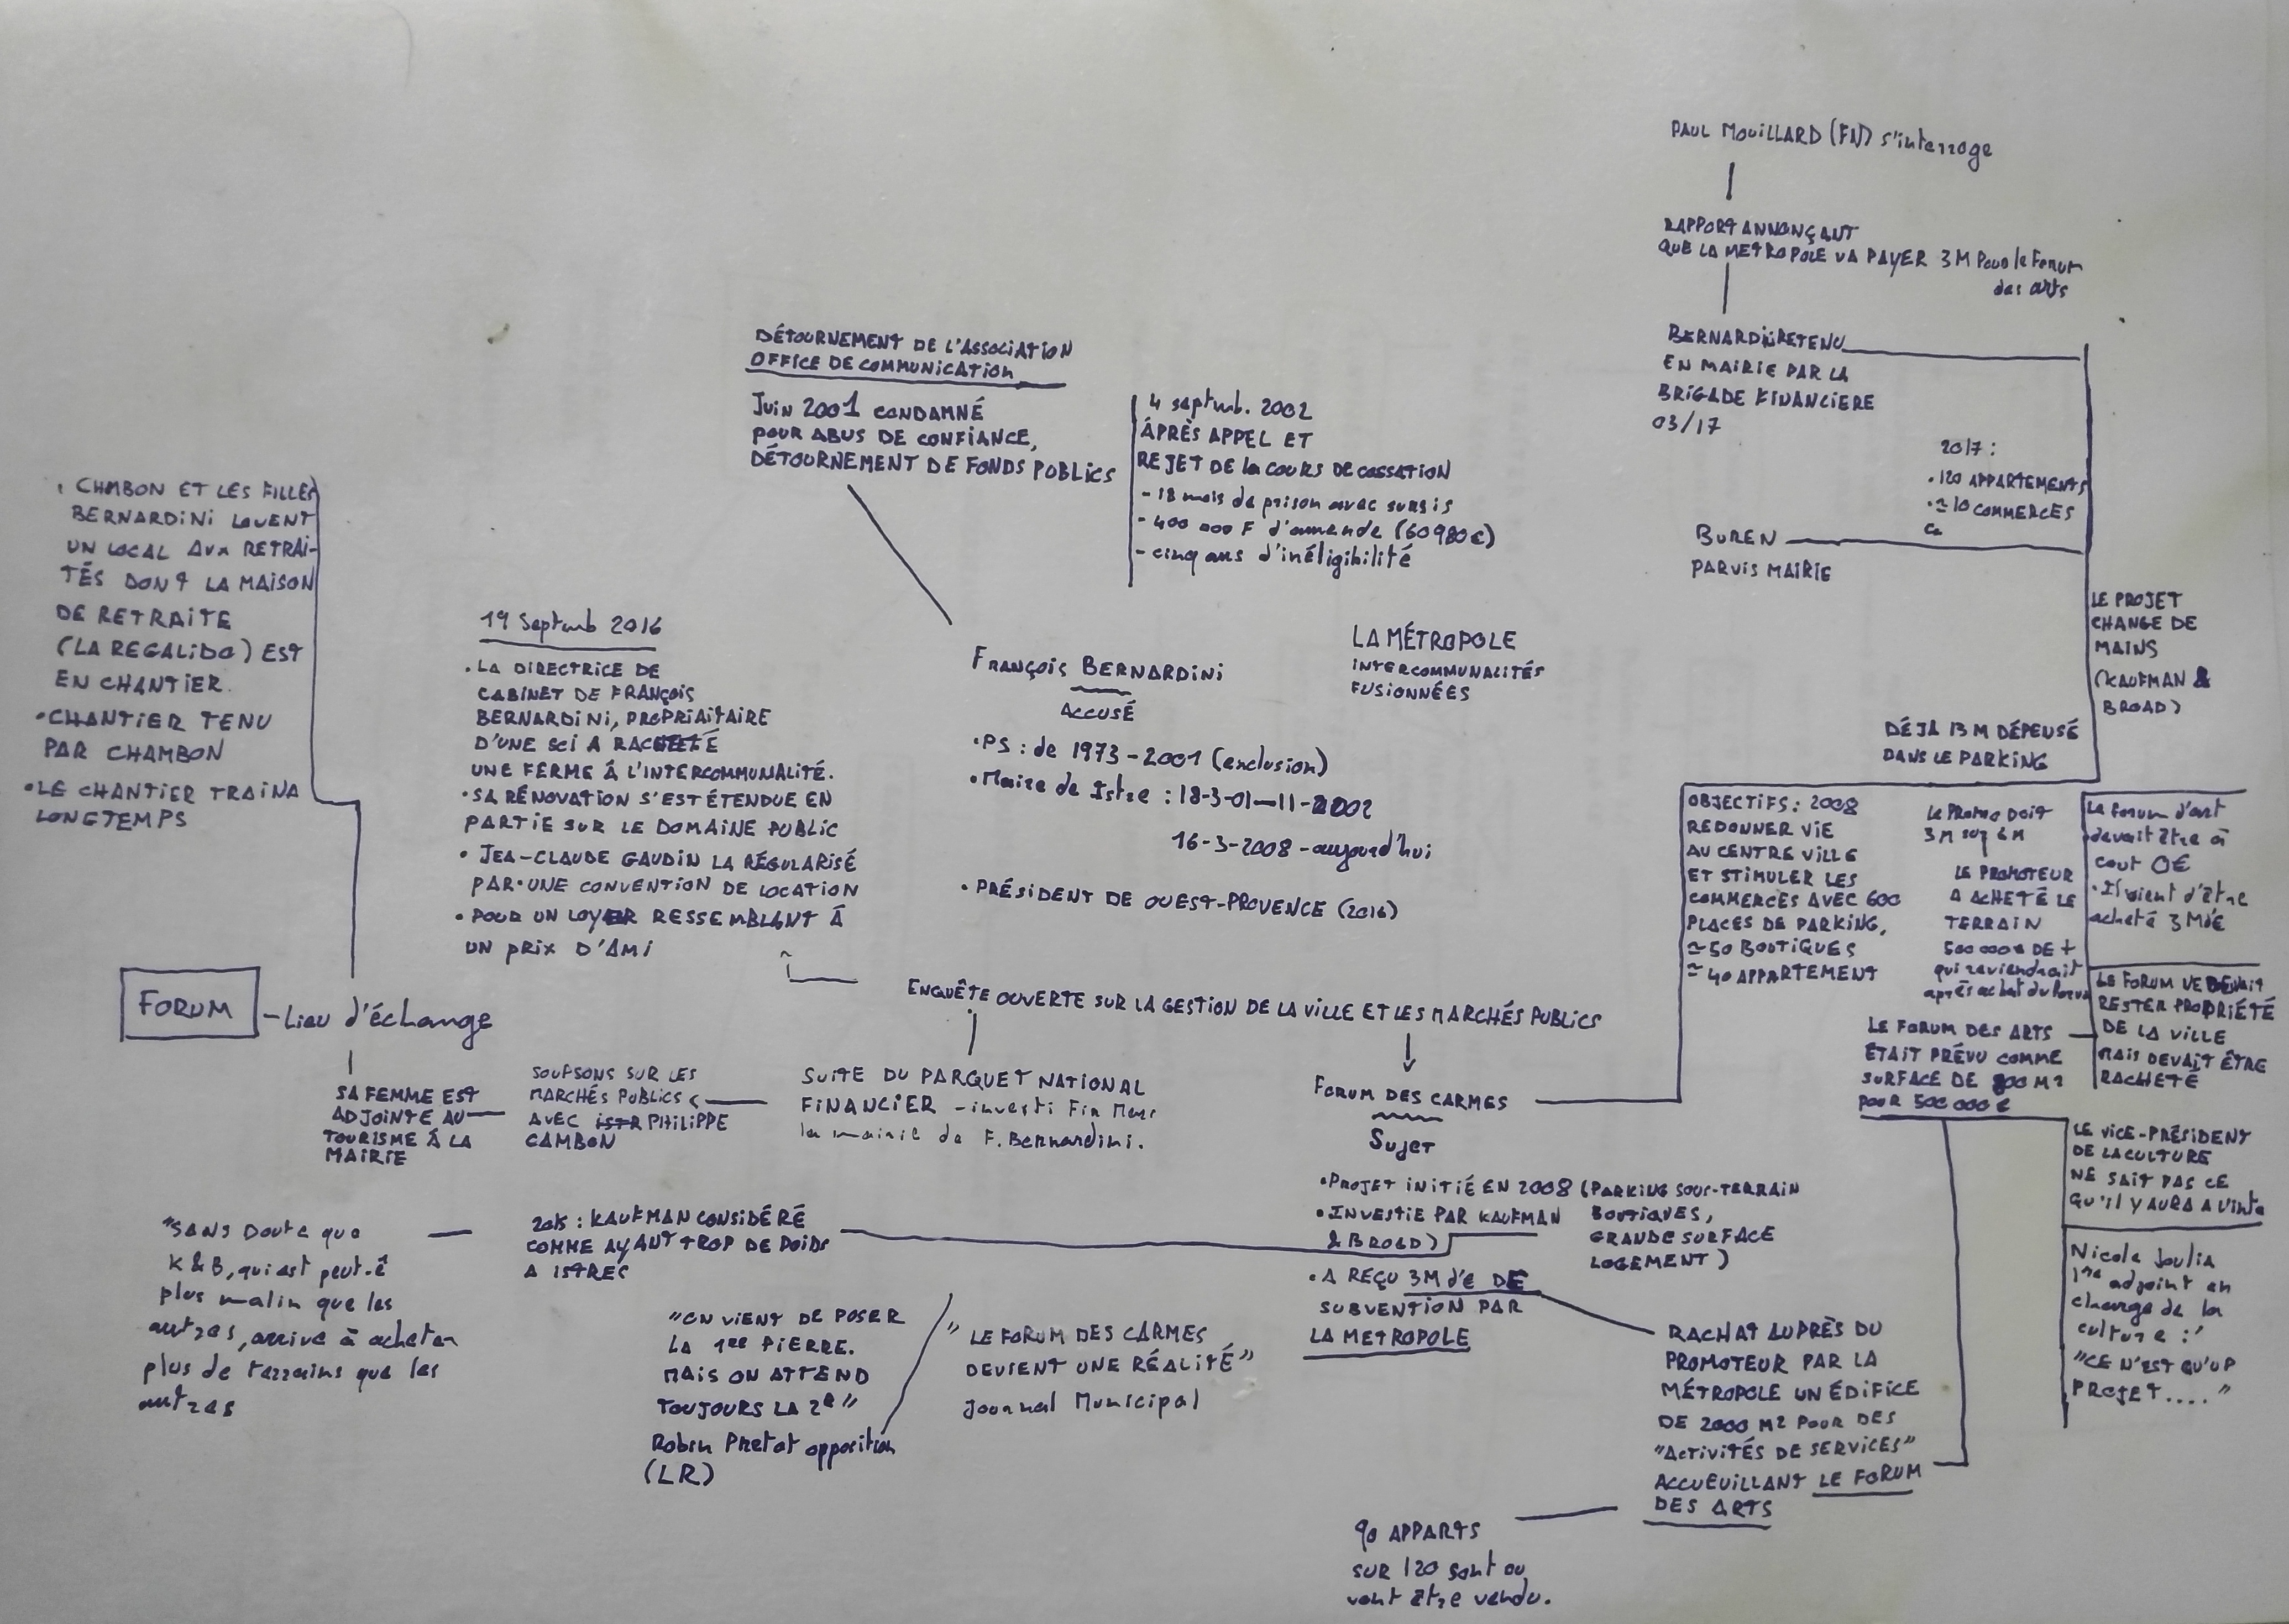 PAUL MOUILLARD (FN) s'interroge
RAPPORT ANNONÇANT
QUE LA METROPOLE VA PAYER 3M Pour le Forum
des arts
BERNARDINI RETENU
EN MAIRIE PAR LA
BRIGADE FINANCIERE
03/17
2017 :
• 120 APPARTEMENTS
• ≃ 10 COMMERCES
BUREN
PARVIS MAIRIE
LE PROJET
CHANGE DE
MAINS
(KAUFMAN &
BROAD)
DÉJA 13 M DÉPENSÉ
DANS LE PARKING
DÉTOURNEMENT DE L'ASSOCIATION
OFFICE DE COMMUNICATION
Juin 2001 CONDAMNÉ
POUR ABUS DE CONFIANCE,
DÉTOURNEMENT DE FONDS PUBLICS
4 septemb. 2002
ÁPRÈS APPEL ET
REJET DE la COURS DE CASSATION
- 18 mois de prison avec sursis
- 400 000 F d'amende (60 980€)
- cinq ans d'inéligibilité
• CHMBON ET LES FILLES
BERNARDINI LOUENT
UN LOCAL AUX RETRAI-
TÉS DONT LA MAISON
DE RETRAITE
(LA REGALIDO) EST
EN CHANTIER.
• CHANTIER TENU
PAR CHAMBON
• LE CHANTIER TRAINA
LONGTEMPS
19 Septemb 2016
• LA DIRECTRICE DE
CABINET DE FRANÇOIS
BERNARDINI, PROPRIAITAIRE
D'UNE SCI A RACHETÉ
UNE FERME Á L'INTERCOMMUNALITÉ.
• SA RÉNOVATION S'EST ÉTENDUE EN
PARTIE SUR LE DOMAINE PUBLIC
• JEA-CLAUDE GAUDIN LA RÉGULARISÉ
PAR UNE CONVENTION DE LOCATION
• POUR UN LOYER RESSEMBLANT Á
UN PRIX D'AMI
FRANÇOIS BERNARDINI
ACCUSÉ
• PS : de 1973 - 2001 (exclusion)
• Maire de Istre : 18-3-01 — 11-2002
16-3-2008 - aujourd'hui
• PRÉSIDENT DE OUEST-PROVENCE (2016)
LA MÉTROPOLE
INTERCOMMUNALITÉS
FUSIONNÉES
OBJECTIFS : 2008
REDONNER VIE
AU CENTRE VILLE
ET STIMULER LES
COMMERCES AVEC 600
PLACES DE PARKING,
≃ 50 BOUTIQUES
≃ 40 APPARTEMENT
LE PROMO DOIT
3 M SUR 6 M
LE PROMOTEUR
A ACHETÉ LE
TERRAIN
500 000€ DE +
qui reviendrait
après achat du forum
Le forum d'art
devait être à
cout 0€
• Il vient d'être
acheté 3 M d'€
LE FORUM NE DEVAIT
RESTER PROPRIÉTÉ
DE LA VILLE
MAIS DEVAIT ÊTRE
RACHETÉ
LE FORUM DES ARTS
ÉTAIT PRÉVU COMME
SURFACE DE 800 M2
POUR 500 000 €
LE VICE-PRÉSIDENT
DE LA CULTURE
NE SAIT PAS CE
QU'il Y AURA A
Nicole Joulia
1re adjoint en
charge de la
culture :
"CE N'EST QU'UN
PROJET...."
FORUM
- Lieu d'échange
ENQUÊTE OUVERTE SUR LA GESTION DE LA VILLE ET LES MARCHÉS PUBLICS
SA FEMME EST
ADJOINTE AU
TOURISME Á LA
MAIRIE
SOUPSONS SUR LES
MARCHÉS PUBLICS
AVEC ISTR PHILIPPE
CAMBON
SUITE DU PARQUET NATIONAL
FINANCIER - investi Fin Mars
la mairie de F. Bernardini.
FORUM DES CARMES
SUJET
• PROJET INITIÉ EN 2008 (PARKING SOUS-TERRAIN
BOUTIQUES,
GRANDE SURFACE
LOGEMENT)
• INVESTIE PAR KAUFMAN
& BROAD)
• A REÇU 3M d'€ DE
SUBVENTION PAR
LA METROPOLE
"SANS Doute que
K & B, qui est peut-ê
plus malin que les
autres, arrive à acheter
plus de terrains que les
autres
2015 : KAUFMAN CONSIDÉRÉ
COMME AYANT TROP DE POIDS
A ISTRES
"ON VIENT DE POSER
LA 1ère PIERRE.
MAIS ON ATTEND
TOUJOURS LA 2e"
Robin Pretot opposition
(LR)
" LE FORUM DES CARMES
DEVIENT UNE RÉALITÉ"
Journal Municipal
RACHAT AUPRÈS DU
PROMOTEUR PAR LA
MÉTROPOLE UN ÉDIFICE
DE 2000 M2 POUR DES
"ACTIVITÉS DE SERVICES"
ACCUEUILLANT LE FORUM
DES ARTS
90 APPARTS
SUR 120 sont ou
vont être vendu.